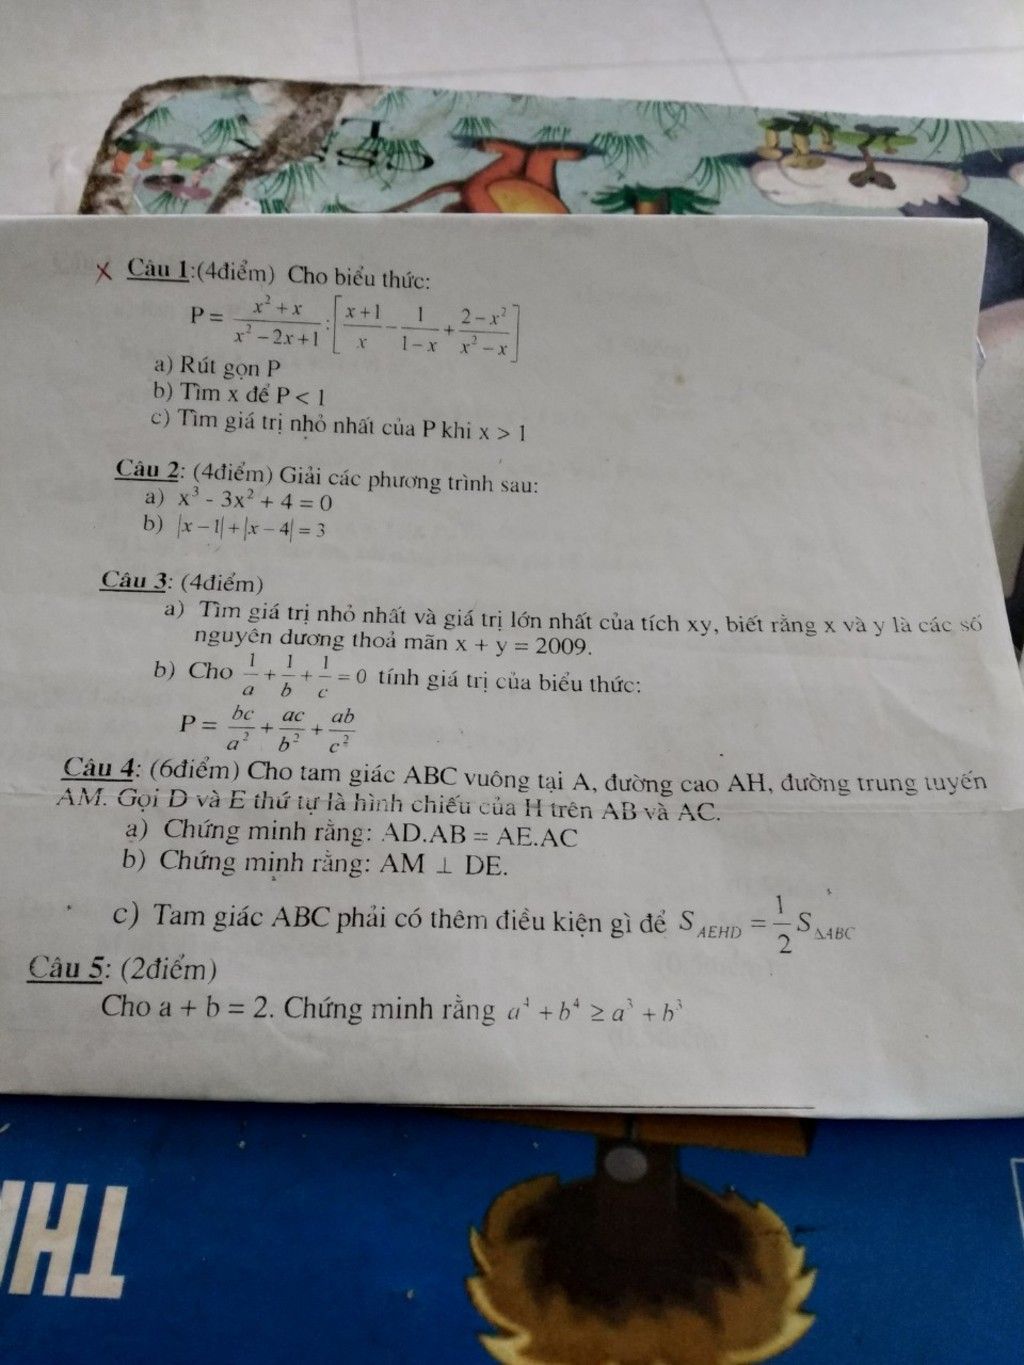 Câu 1:(4điểm) Cho biểu thức:
P = \frac{x^2+x}{x^2-2x+1} : \left[\frac{x+1}{x} - \frac{1}{1-x} + \frac{2-x^2}{x^2-x}\right]
a) Rút gọn P
b) Tìm x để P < 1
c) Tìm giá trị nhỏ nhất của P khi x > 1
Câu 2: (4điểm) Giải các phương trình sau:
a) x³ - 3x² + 4 = 0
b) |x – 1| + |x – 4| = 3
Câu 3: (4điểm)
a) Tìm giá trị nhỏ nhất và giá trị lớn nhất của tích xy, biết rằng x và y là các số
nguyên dương thoả mãn x + y = 2009.
b) Cho \frac{1}{a} + \frac{1}{b} + \frac{1}{c} = 0 tính giá trị của biểu thức:
P = \frac{bc}{a^2} + \frac{ac}{b^2} + \frac{ab}{c^2}
Câu 4: (6điểm) Cho tam giác ABC vuông tại A, đường cao AH, đường trung tuyến
AM. Gọi D và E thứ tự là hình chiếu của H trên AB và AC.
a) Chứng minh rằng: AD.AB = AE.AC
b) Chứng minh rằng: AM ⊥ DE.
c) Tam giác ABC phải có thêm điều kiện gì để S_{AEHD} = \frac{1}{2} S_{ΔABC}
Câu 5: (2điểm)
Cho a + b = 2. Chứng minh rằng a⁴ + b⁴ ≥ a³ + b³
TH